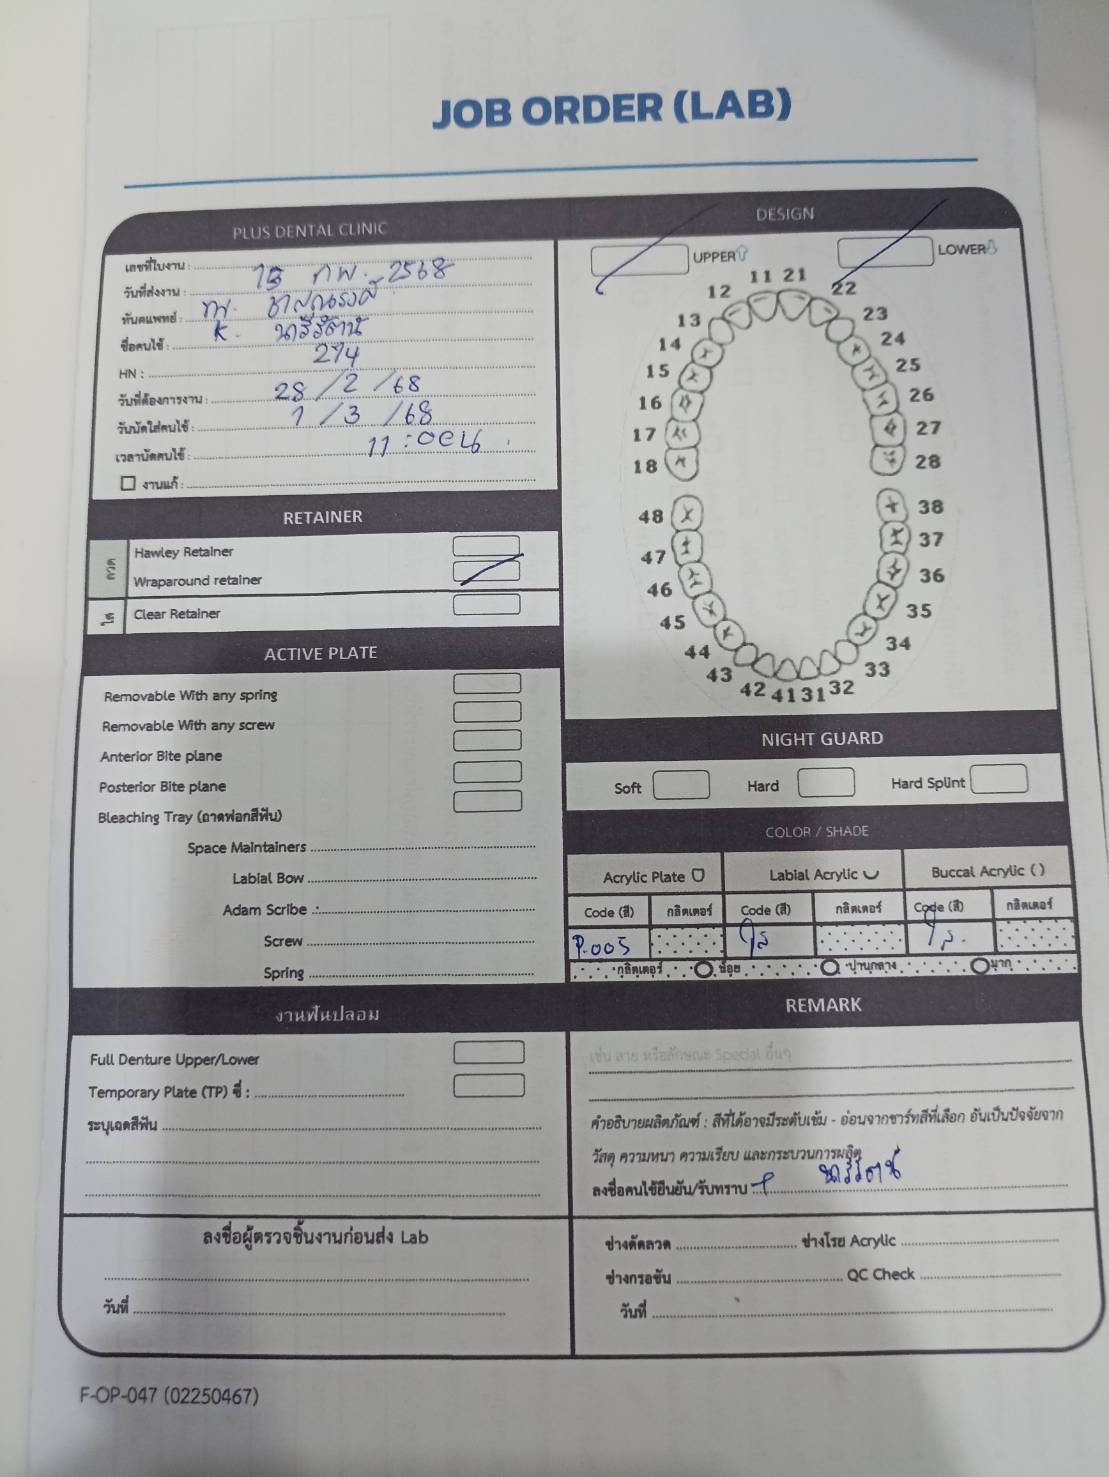 JOB ORDER (LAB)
PLUS DENTAL CLINIC
เลขที่ใบงาน :
วันที่ส่งงาน : 13 กพ. 2568
ทันตแพทย์ : ทพ.
ชื่อคนไข้ : K. นารีรัตน์
HN : 274
วันที่ต้องการงาน : 28 / 2 / 68
วันนัดใส่คนไข้ : 1 / 3 / 68
เวลานัดคนไข้ : 11 : 00 น.
งานแก้ :
RETAINER
ลวด
Hawley Retainer
Wraparound retainer
ใส
Clear Retainer
ACTIVE PLATE
Removable With any spring
Removable With any screw
Anterior Bite plane
Posterior Bite plane
Bleaching Tray (ถาดฟอกสีฟัน)
Space Maintainers
Labial Bow
Adam Scribe :
Screw
Spring
งานฟันปลอม
Full Denture Upper/Lower
Temporary Plate (TP) ซี่ :
ระบุเฉดสีฟัน
ลงชื่อผู้ตรวจชิ้นงานก่อนส่ง Lab
วันที่
DESIGN
UPPER LOWER
11 21
12 22
13 23
14 24
15 25
16 26
17 27
18 28
48 38
47 37
46 36
45 35
44 34
43 33
42 41 31 32
NIGHT GUARD
Soft Hard Hard Splint
COLOR / SHADE
Acrylic Plate Labial Acrylic Buccal Acrylic ( )
Code (สี) กลิตเตอร์ Code (สี) กลิตเตอร์ Code (สี) กลิตเตอร์
P.005 ใส ใส
กลิตเตอร์ น้อย ปานกลาง มาก
REMARK
เช่น ลาย หรือลักษณะ Special อื่นๆ
คำอธิบายผลิตภัณฑ์ : สีที่ได้อาจมีระดับเข้ม - อ่อนจากชาร์ทสีที่เลือก อันเป็นปัจจัยจาก
วัสดุ ความหนา ความเรียบ และกระบวนการผลิต
ลงชื่อคนไข้ยืนยัน/รับทราบ นารีรัตน์
ช่างดัดลวด ช่างโรย Acrylic
ช่างกรอขัน QC Check
วันที่
F-OP-047 (02250467)